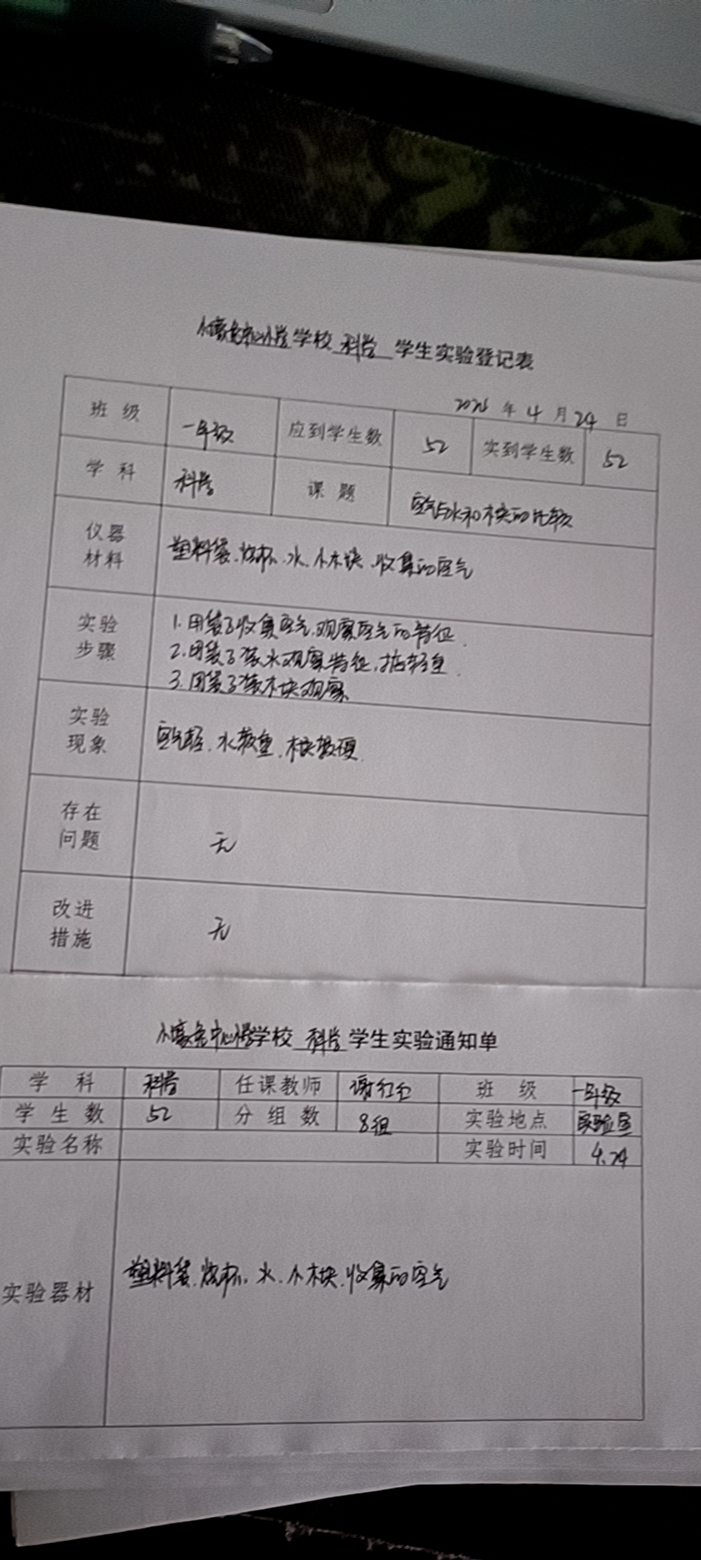 中心小学学校 科学 学生实验登记表
2026 年 4 月 24 日
班 级 一年级 应到学生数 52 实到学生数 52
学 科 科学 课 题 空气与水和木块的比较
仪器材料 塑料袋、烧杯、水、小木块、收集的空气
实验步骤 1.用袋子收集空气,观察空气的特征.
2.用袋子装水观察特征,掂轻重.
3.用袋子装木块观察
实验现象 空气轻、水较重、木块较硬.
存在问题 无
改进措施 无
中心小学学校 科学 学生实验通知单
学 科 科学 任课教师 谢红 班 级 一年级
学生数 52 分组数 8组 实验地点 实验室
实验名称 实验时间 4.24
实验器材 塑料袋、烧杯、水、小木块、收集的空气